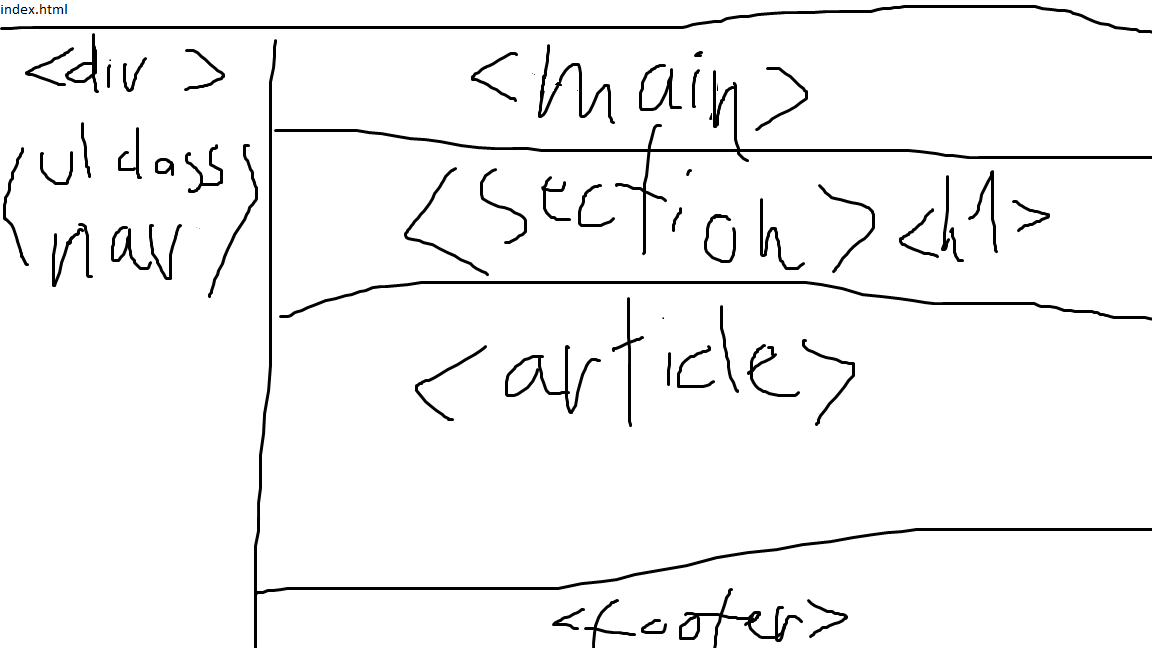 index.html
<div >
<ul class
nav >
<main>
<section> <h1>
<article>
<footer>